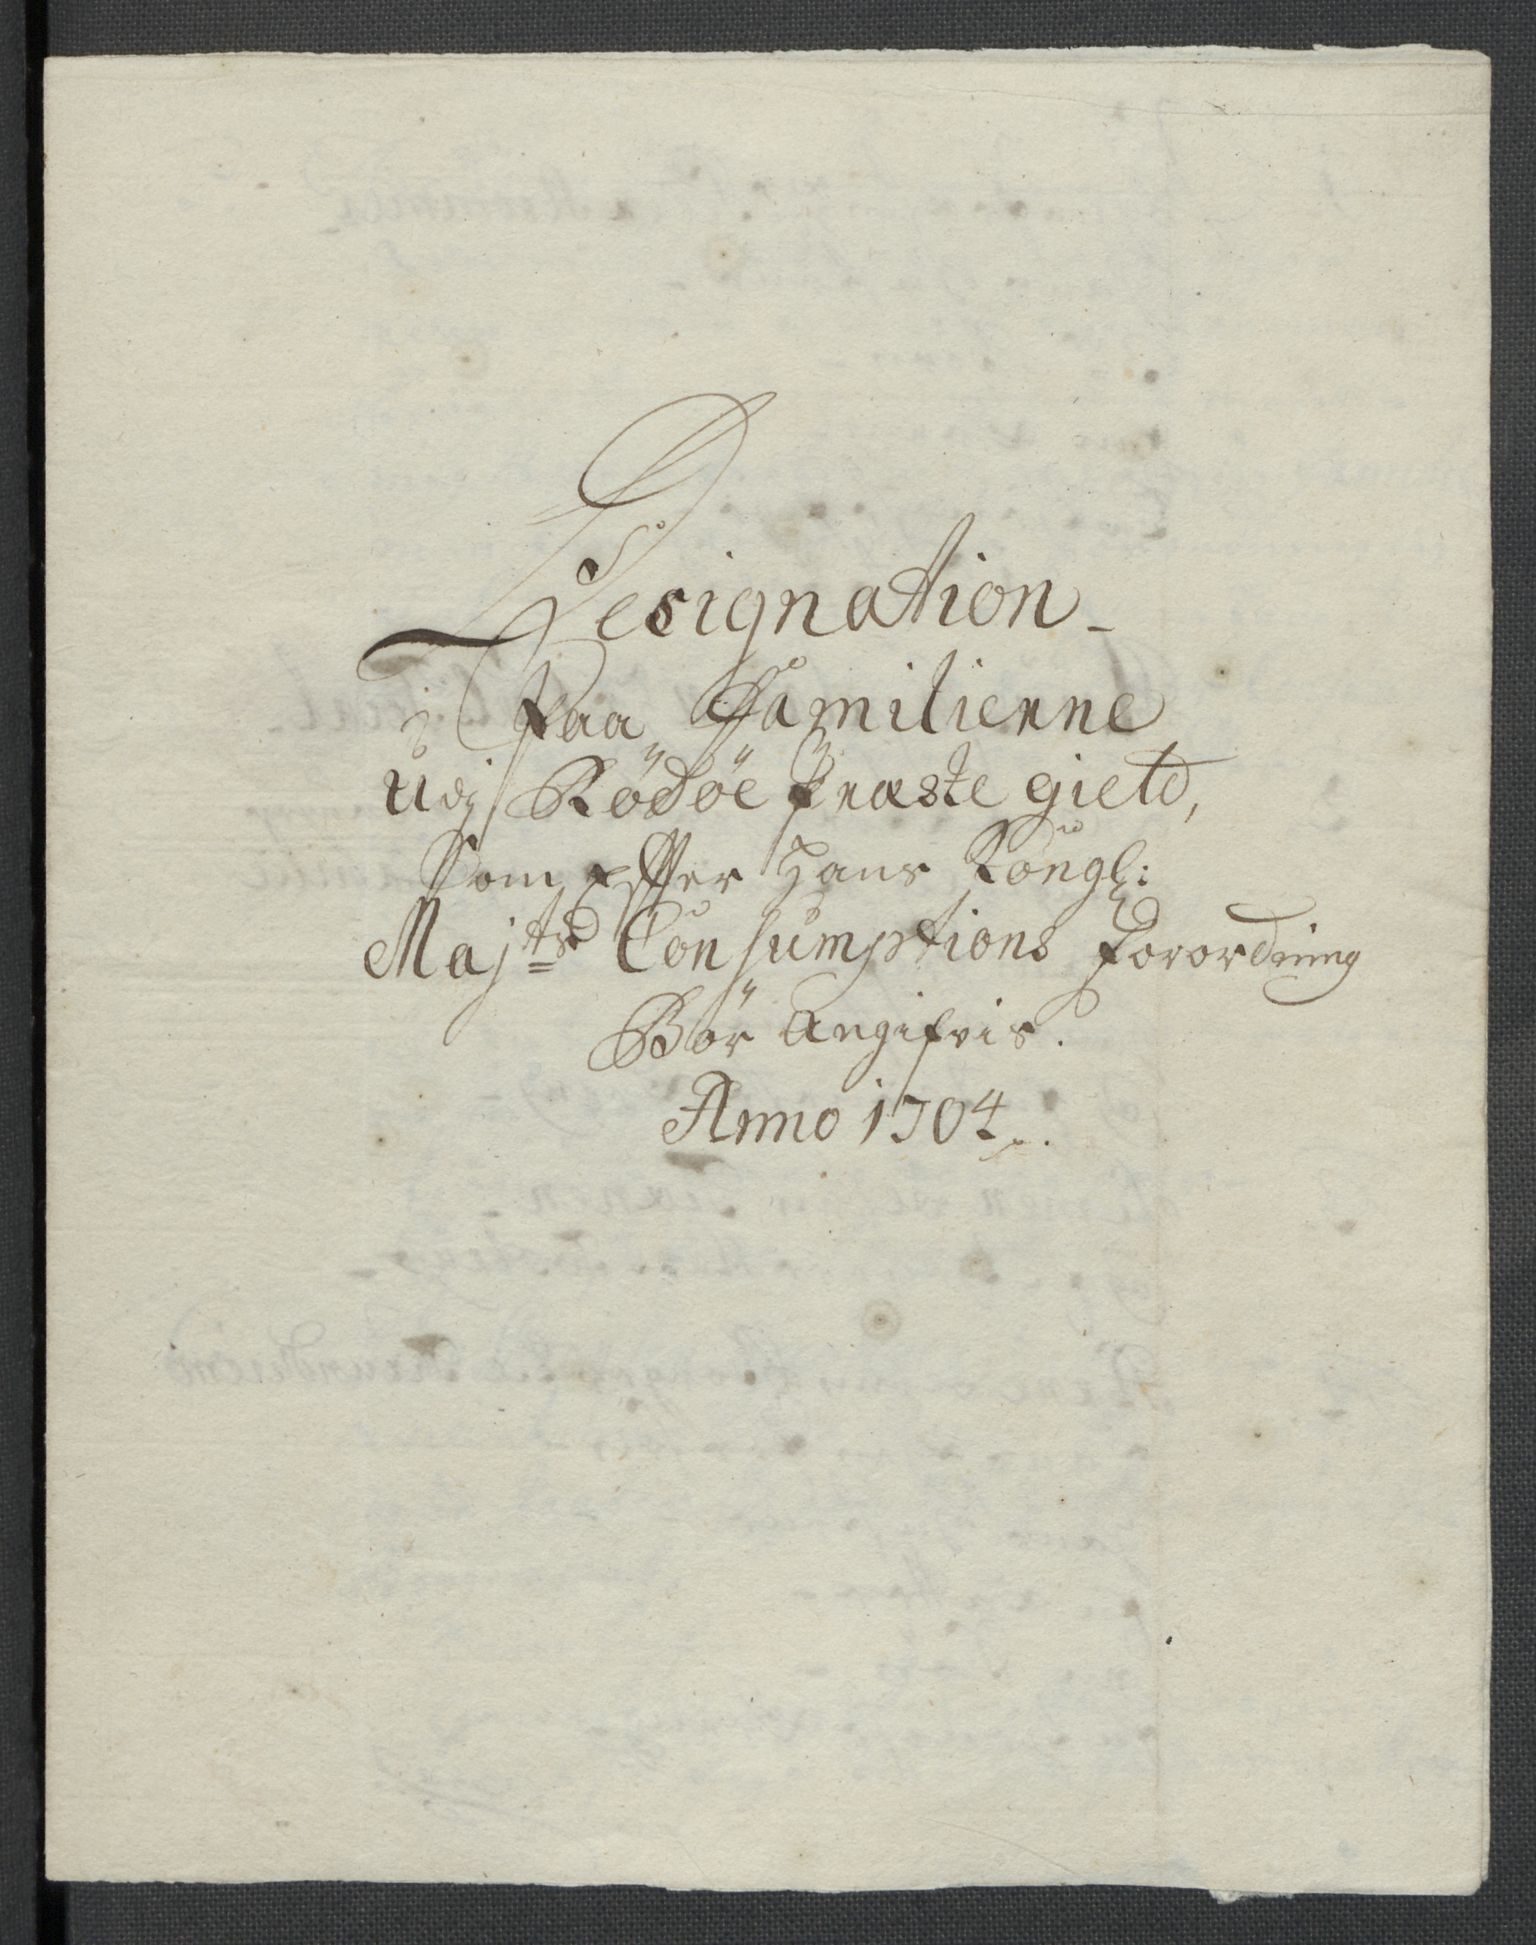 Designation
Paa Familierne
Udj Rödöe Præste gield,
Som Effter Hans Kongl:
Majts Consumptions Forordning
Bör Angifvis.
Anno 1704